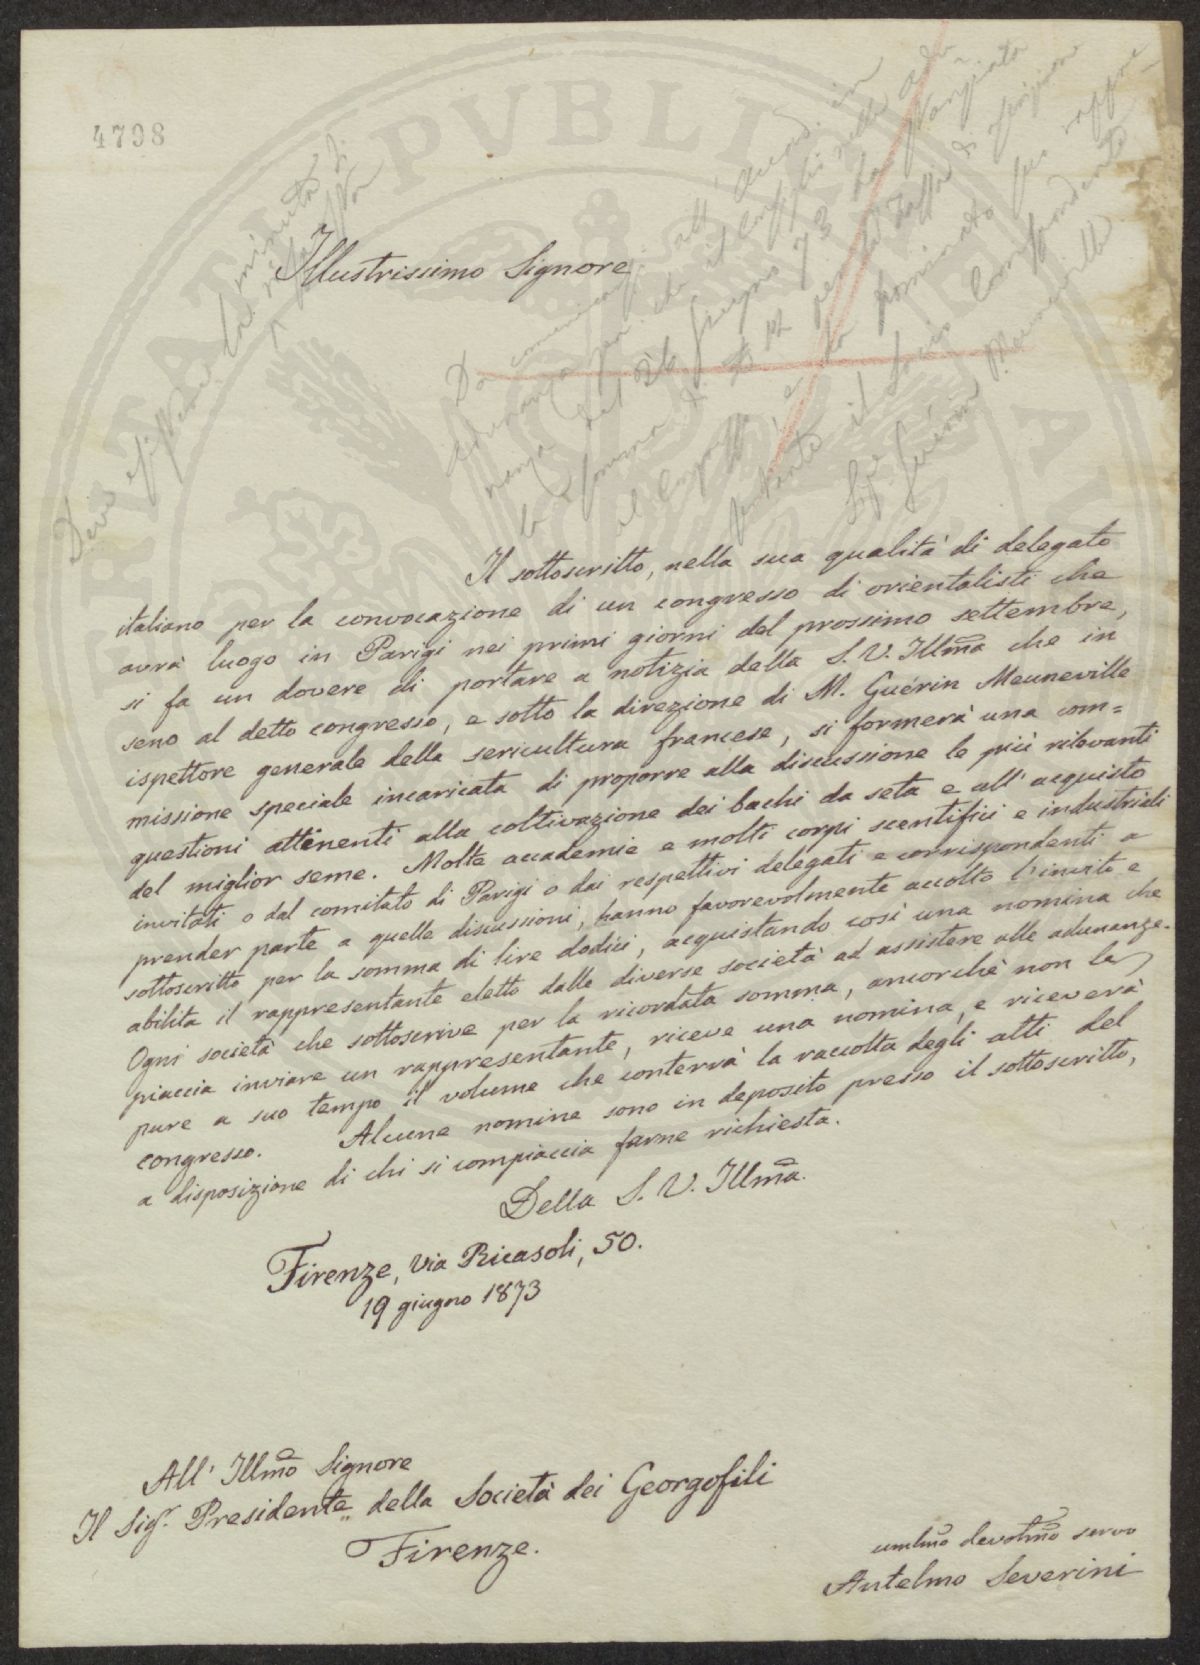 4798
Deve esistere la minuta di
risposta
Da comunicarsi all' Accad. in
adunanza che il Consiglio nella adu
nanza del 26 Giugno 73 ha stanziata
la somma di £ 12 per la tassa di iscrizione
al Congresso e ha nominato suo rappre
sentante il Socio Corrispondente
Sig. Guérin Meuneville
Illustrissimo Signore
Il sottoscritto, nella sua qualità di delegato
italiano per la convocazione di un congresso di orientalisti che
avrà luogo in Parigi nei primi giorni del prossimo settembre,
si fa un dovere di portare a notizia della S. V. Illma che in
seno al detto congresso, e sotto la direzione di M. Guérin Meuneville
ispettore generale della sericultura francese, si formerà una com=
missione speciale incaricata di proporre alla discussione le più rilevanti
questioni attenenti alla coltivazione dei bachi da seta e all' acquisto
del miglior seme. Molte accademie e molti corpi scentifici e industriali
invitati o dal comitato di Parigi o dai respettivi delegati e corrispondenti a
prender parte a quelle discussioni, hanno favorevolmente accolto l'invito e
sottoscritto per la somma di lire dodici, acquistando così una nomina che
abilita il rappresentante eletto dalle diverse società ad assistere alle adunanze.
Ogni società che sottoscrive per la ricordata somma, ancorchè non le
piaccia inviare un rappresentante, riceve una nomina, e riceverà
pure a suo tempo il volume che conterrà la raccolta degli atti del
congresso. Alcune nomine sono in deposito presso il sottoscritto,
a disposizione di chi si compiaccia farne richiesta.
Della S. V. Illma.
Firenze, via Ricasoli, 50.
19 giugno 1873
All' Illmo Signore
Il Sigr. Presidente della Società dei Georgofili
Firenze.
umlmo devotmo servo
Antelmo Severini